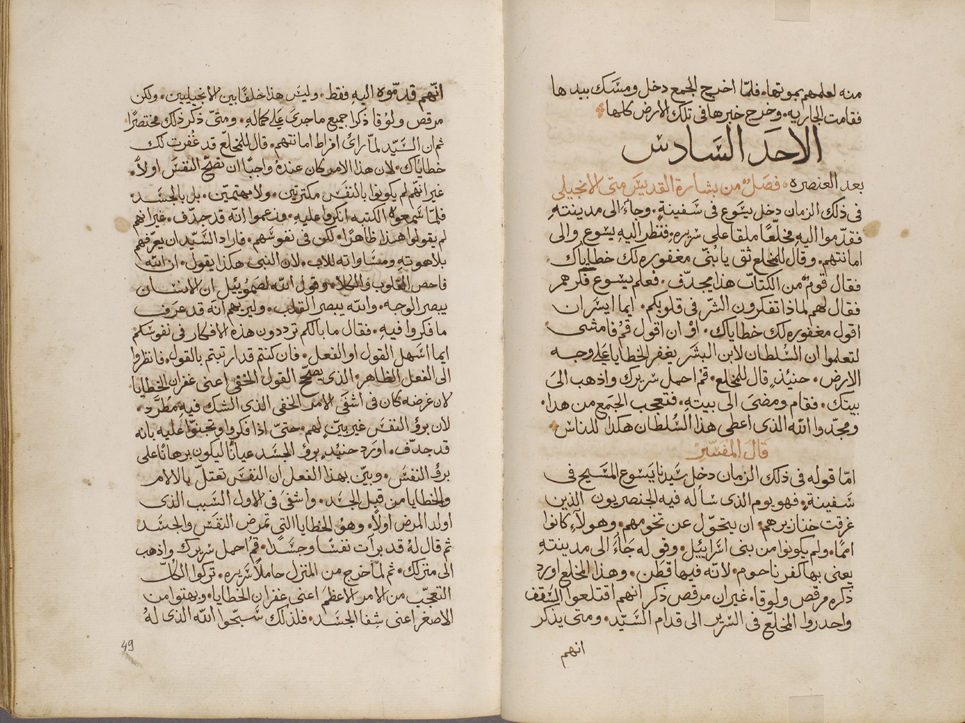 منه لعلمهم بموتها، فلمّا اخرج الجمع دخل ومسَك بيدها
فقامت الجاريه، وخرج خبرها فى تلك الارض كلها
الاحد السّادس
بعد العنصره، فصَل من بشارة القديس متى الانجيلى
فى ذلك الزمان دخل يسَوع فى سَفينةٍ، وجاءَ الى مدينته
فقدّموا اليه مخلّعًا ملقا على سَريره، فنظر اليه يسوع والى
امانتهم، وقال للمخلع ثق يا بُنىّ مغفوره لك خطاياك
فقال قومٌ من الكتّاب هذا مجدّف، فعلم يسَوع فكرهم
فقال لهم لماذا تفكرون الشّر فى قلوبكم، ايما ايسَر ان
اقول مغفوره لك خطاياك، او ان اقول قم فامشى
لتعلموا ان السُلطان لابن البشَر بغفر الخطايا على وجه
الارض، حينيذٍ قال للمخلع، قم احمل سَريرك واذهب الىَ
بيتك، فقام ومضىَ الى بيته، فتعجب الجمَع من هذا،
ومجّدوا اللّه الذى اعطى هذا السُلطان هكذا للناس
قالَ المفسّر
امّا قوله فى ذلك الزمان دخل سَيدنا يَسوع المسَيح فى
سَفينة، فهو يوم الذى سَاله فيه الجنصريون الذين
غرقت خنازيرهم، ان يتحوّل عن تخومهم، وهولآءِ كانوا
اممًا، ولم يكونوا من بنى اسَرائيل، وقوله جاءَ الى مدينتهِ
يعنى بها كفرناحوم، لانّه فيها قطن، وهذا المخلع اورد
ذكره مرقص ولوقا، غير ان مرقص ذكر انهم اقتلعوا السَقف
واحدروا المخلّع فى السّرير الى قدام السَيّد، ومتى يذكر
انهم
انّهم قدّموه اليهِ فقط، وليسَ هذا خلفًا بين الانجيليين، ولكن
مرقص ولوقا ذكرا جميع ما جرىَ على كماله، ومتىّ ذكر ذلك مختصرًا
ثم ان السَيّد لمّا رأىَ افراط امانتهم، قال للمخلّع قد غُفرت لك
خطاياك، لان هذا الامر كان عندهُ واجبًا ان تصحّ النفسَ اولاً،
غير انهم لم يكونوا بالنفسَ مكترثين، ولا مهتمين، بل بالجسَد
فلمّا سَمعوهُ الكتبه انكروا عليه، وزعموا انّه قد جدّف، غير انهم
لم يقولوا هذا ظاهرًا، لكن فى نفوسَهم، فاراد السَيّد ان يعرّفهم
بلاهوتهِ ومسَاواته للاب، لان النبى هكذا يقول، ان اللّه
فاحص القلوب والكلا، وقول اللّه لصموييل ان الانسَان
يبصر الوجه، واللّه يبصر القلب، وليريهم انه قد عرف
ما فكروا فيه، فقال ما بالكم تردّدون هذه الافكار فى نفوسَكم
ايما اسَهل القول او الفعل، فان كنتم قد ارتبتم بالقول، فانظروا
الى الفعل الظاهر، الذى يصحّح القول الخفى، اعنى غفران الخطايا
لان غرضه كان فى اشَفى الامر الخفى الذى الشك فيه مطّرد،
لان برؤَ النفسَ غير بيّن لهم، حتىّ اذا فكروا وتجنوّا عليه بانه
قد جدّف، اورد حنيئذٍ برؤَ الجسَد عيانًا ليكون برهانًا على
برؤِ النفسَ، وبيّن بهذا الفعل ان النفسَ تعتلّ بالالامر
والخطايا من قبل الجسَد، واشفىَ فى الاول السَبب الذى
اولد المرض اولاً، وهو الخطايا التى تمرض النفسَ والجسَد
ثم قال لهُ قد برأت نفسًا وجسَدًا، قم احمل سَريرك واذهب
الى منزلك، ثم لمّا خرج من المنزل حاملاً سَريره، تركوا الكلّ
التعجّب من الامر الاعظم اعنى غفران الخطايا، وبهتوا من
الاصغر اعنى شفا الجسَد، فلذلك سَبّحوا اللّه الذى لهُ
49